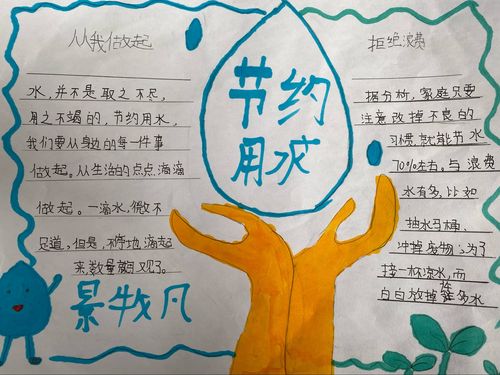 从我做起
水，并不是取之不尽，
用之不竭的，节约用水，
我们要从身边的每一件事
做起。从生活的点点滴滴
做起。一滴水，微不
足道，但是，不停地滴起
来，数量就可观了。
节约
用水
景牧凡
拒绝浪费
据分析，家庭只要
注意改掉不良的
习惯就能节水
70%左右。与浪费
水有多，比如
抽水马桶
冲掉废物；为了
接一杯凉水，而
白白放掉许多水